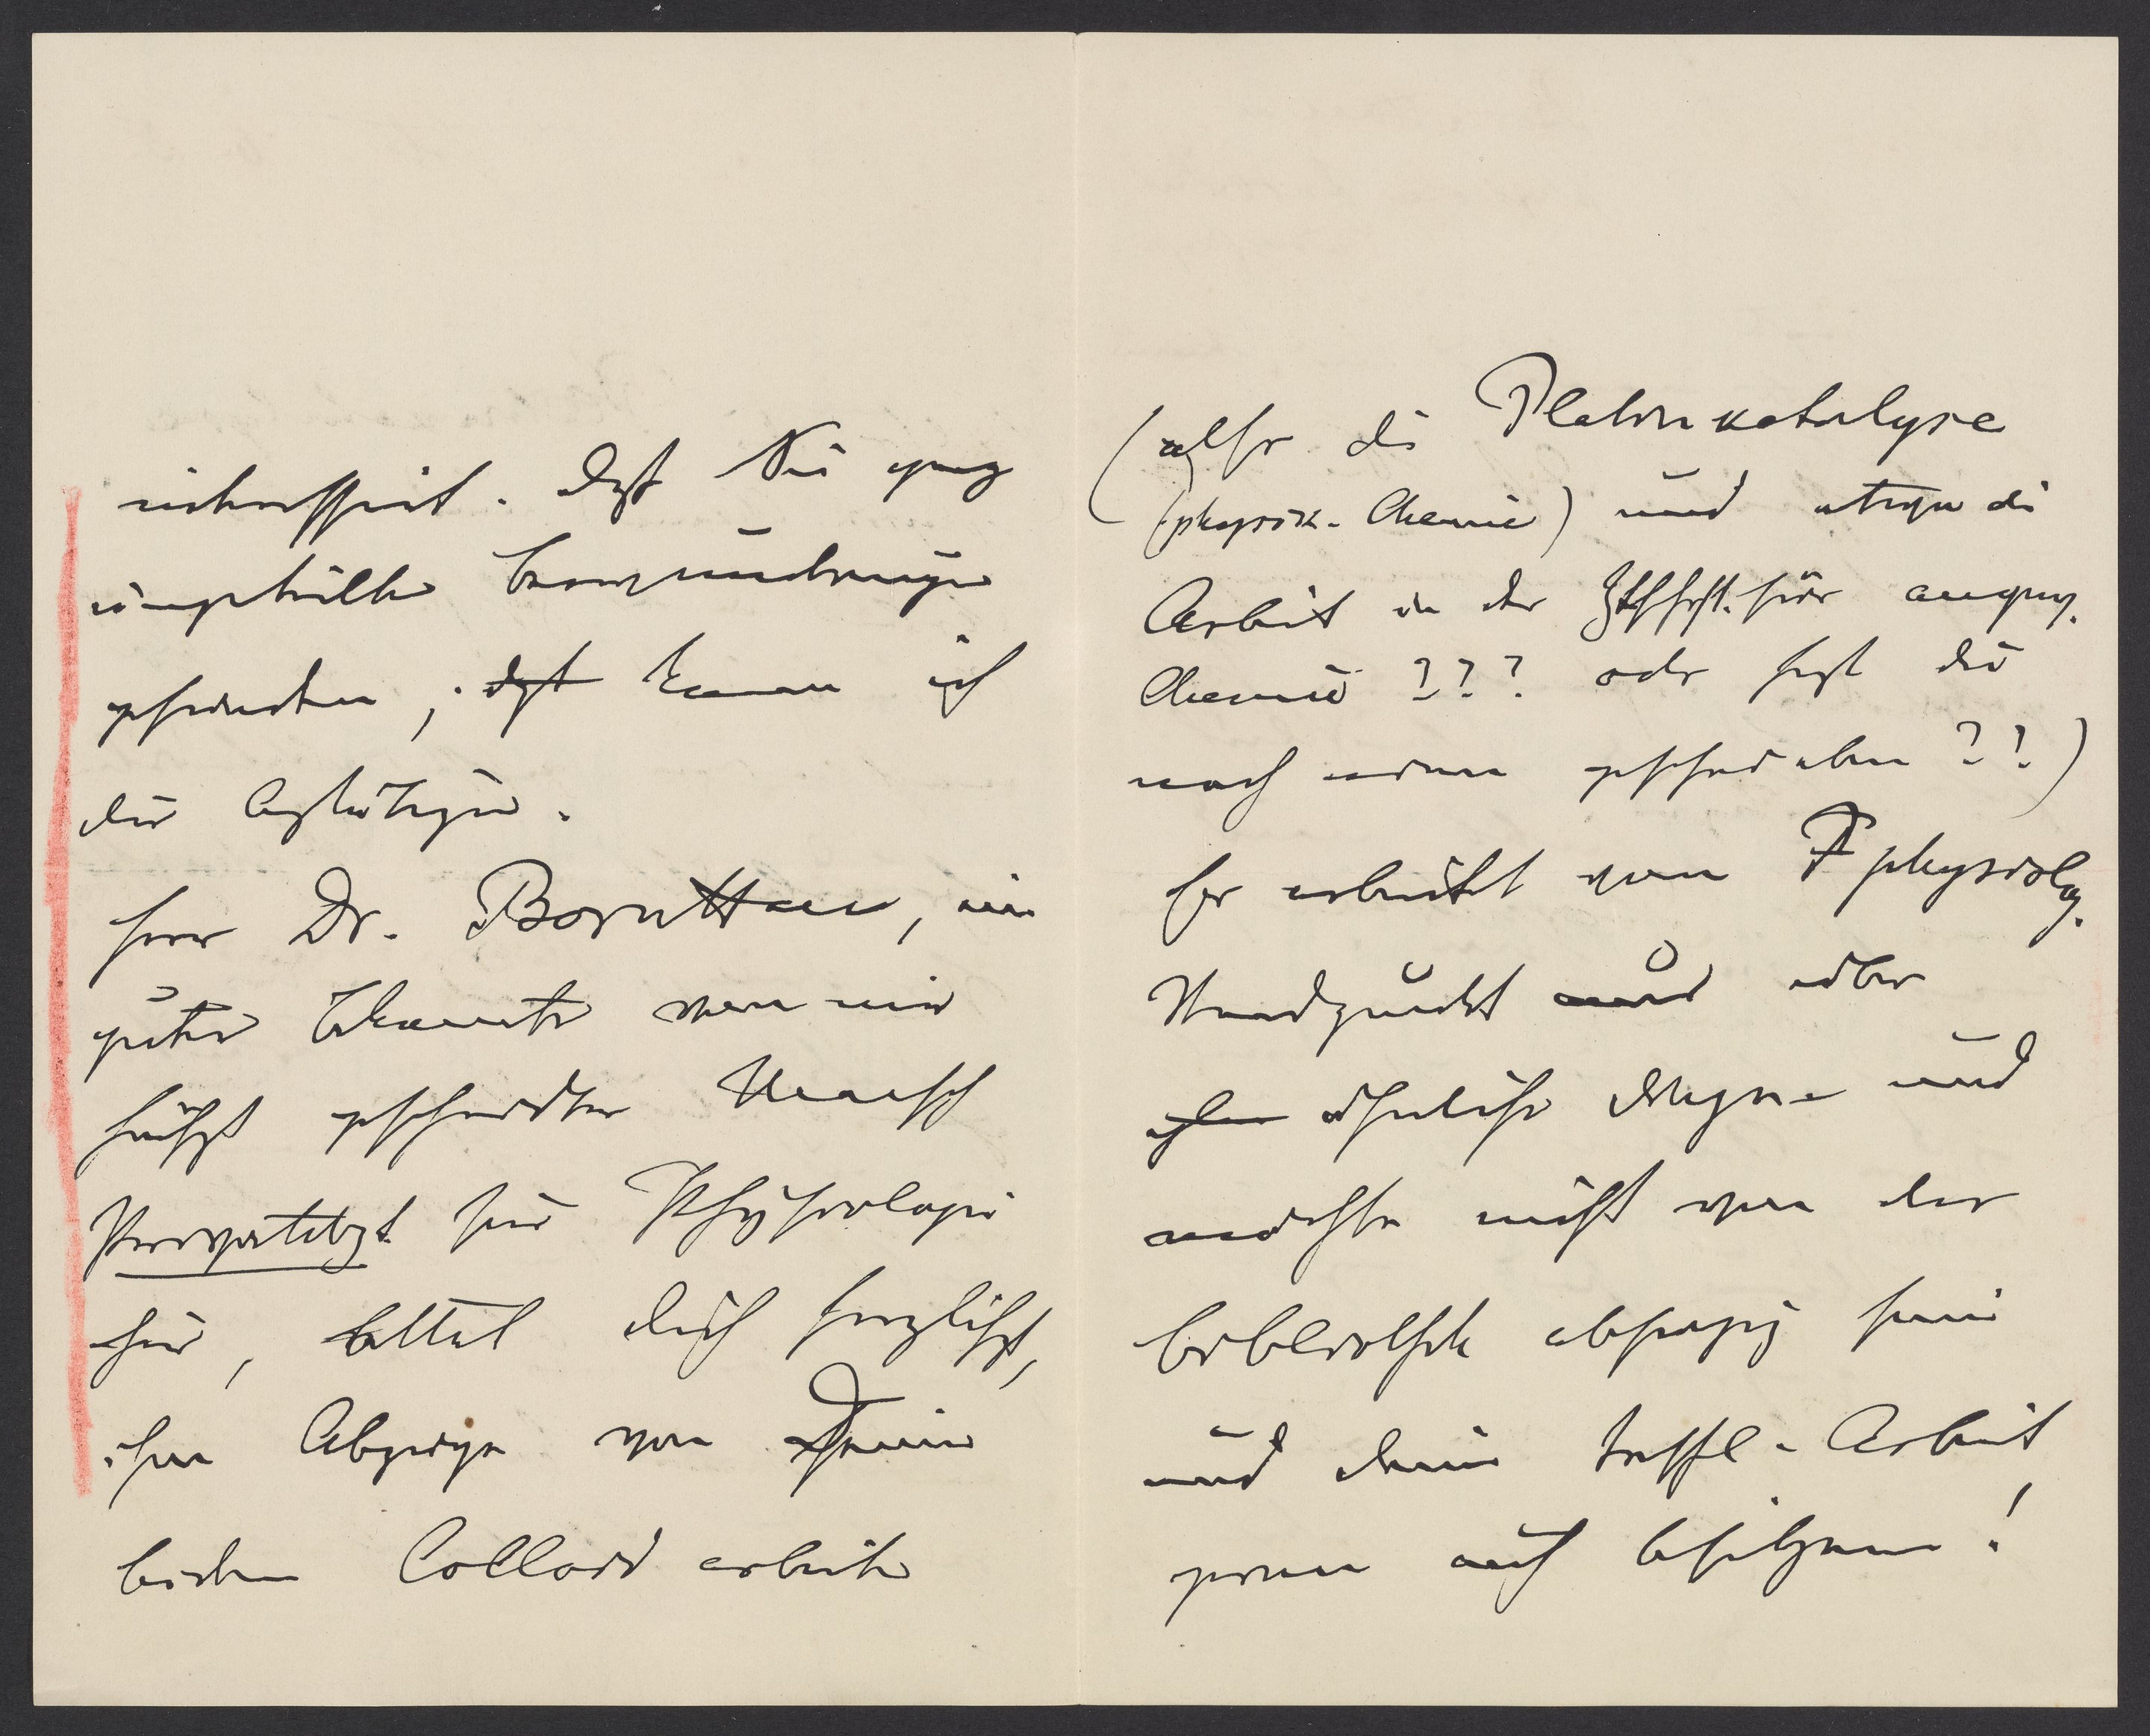 interessirt. Daß Sie ganz
ungetheilte Bewunderung
gefunden, daß kann ich
Dir bestätigen.
Herr Dr. Boruttau, ein
guter Bekannter von mir
höchst gescheidter Mensch
Privatdzt. für Physiologie
hier, bittet Dich herzlichst,
ihm Abzüge von Deinen
beiden Colloid arbeiten
(also die Platinkatalyse
(physik. Chemie) und die
Arbeit in der Ztschft. für anorg.
Chemie ??? oder hast Du
noch mehr geschrieben ??)
Er arbeitet vom physiolog.
Standpunkt über
ähnliche Dinge und
möchte nicht von der
Bibliothek abhängig sein
und Deine treffl. Arbeit
gern auch besitzen!